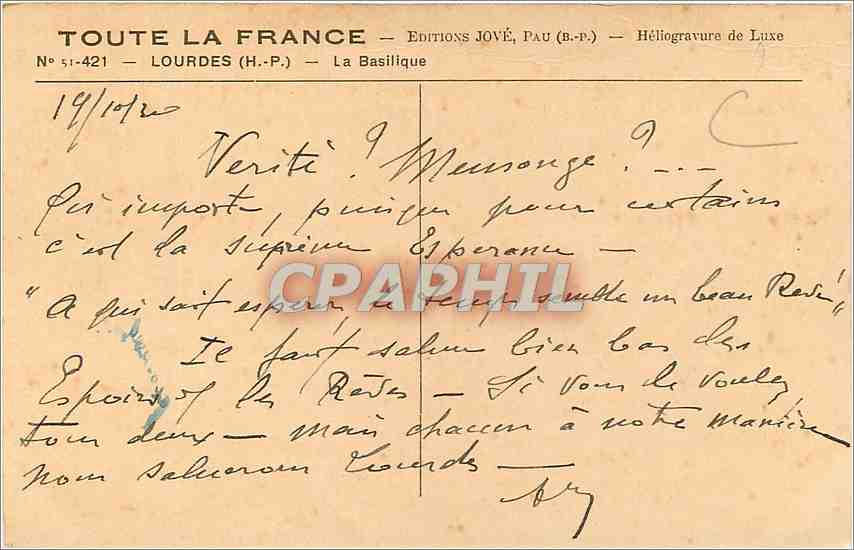 TOUTE LA FRANCE — EDITIONS JOVÉ, PAU (B.-P.) — Héliogravure de Luxe
N° 51-421 — LOURDES (H.-P.) — La Basilique
19/10/30
Verité ? Mensonge ? ...
Qu'importe, puisque pour certains
c'est la suprême Esperance —
CPARPHIL
"A qui sait esperer, le temps semble un beau Rêve!"
Il faut saluer bien bas les
Espoirs et les Rêves — Si vous le voulez
tous deux — mais chacun à notre manière
nous saluerons Lourdes —